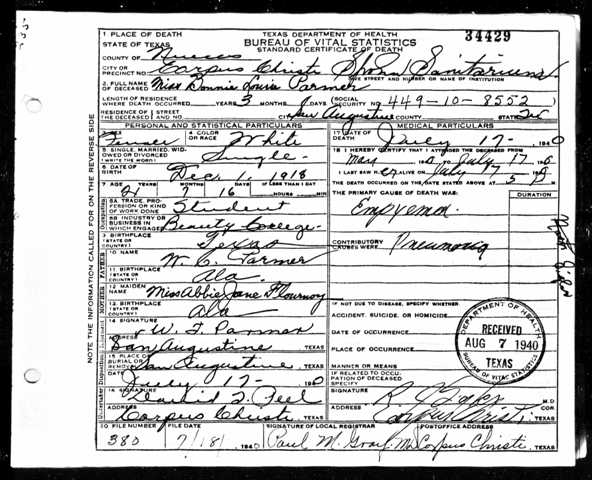 34429
1 PLACE OF DEATH
STATE OF TEXAS
TEXAS DEPARTMENT OF HEALTH
BUREAU OF VITAL STATISTICS
STANDARD CERTIFICATE OF DEATH
COUNTY OF Nueces
CITY OR PRECINCT NO. Corpus Christi Sanitarium
GIVE STREET AND NUMBER OR NAME OF INSTITUTION
2 FULL NAME OF DECEASED Miss Bonnie Louise Parmer
LENGTH OF RESIDENCE WHERE DEATH OCCURRED YEARS 3 MONTHS DAYS (SOCIAL SECURITY NO. 449-10-8552
RESIDENCE OF THE DECEASED STREET AND NO. CITY San Augustine COUNTY STATE Tex
PERSONAL AND STATISTICAL PARTICULARS
MEDICAL PARTICULARS
3 SEX Female 4 COLOR OR RACE White
17 DATE OF DEATH July 17- 1940
5 SINGLE, MARRIED, WIDOWED OR DIVORCED (WRITE THE WORD) Single
18 I HEREBY CERTIFY THAT I ATTENDED THE DECEASED FROM May July 17
I LAST SAW ALIVE ON July 17
6 DATE OF BIRTH Dec. 1, 1918
THE DEATH OCCURRED ON THE DATE STATED ABOVE AT 5
7 AGE 21 16 IF LESS THAN 1 DAY HOURS MIN
THE PRIMARY CAUSE OF DEATH WAS: DURATION
8A TRADE, PROFESSION OR KIND OF WORK DONE Student
Empyema
8B INDUSTRY OR BUSINESS IN WHICH ENGAGED Beauty College
9 BIRTHPLACE (STATE OR COUNTRY) Texas
CONTRIBUTORY CAUSES WERE: Pneumonia
10 NAME Parmer
11 BIRTHPLACE (STATE OR COUNTRY) Ala.
12 MAIDEN NAME Miss Abbie Jane Flournoy
13 BIRTHPLACE (STATE OR COUNTRY) Ala
IF NOT DUE TO DISEASE, SPECIFY WHETHER:
ACCIDENT, SUICIDE, OR HOMICIDE
14 SIGNATURE Parmer
DATE OF OCCURRENCE
ADDRESS San Augustine TEXAS
PLACE OF OCCURRENCE
15 PLACE OF BURIAL OR REMOVAL San Augustine TEXAS
MANNER OR MEANS
DATE July 17- 1940
IF RELATED TO OCCUPATION OF DECEASED SPECIFY
16 SIGNATURE David Peel
SIGNATURE M.D.
ADDRESS Corpus Christi TEXAS
ADDRESS Corpus Christi, TEXAS
DEPARTMENT OF HEALTH
RECEIVED
AUG 7 1940
TEXAS
BUREAU OF VITAL STATISTICS
20 FILE NUMBER FILE DATE SIGNATURE OF LOCAL REGISTRAR POSTOFFICE ADDRESS
380 7/18/ 1940 Paul M. Corpus Christi, TEXAS
NOTE THE INFORMATION CALLED FOR ON THE REVERSE SIDE
FATHER
MOTHER